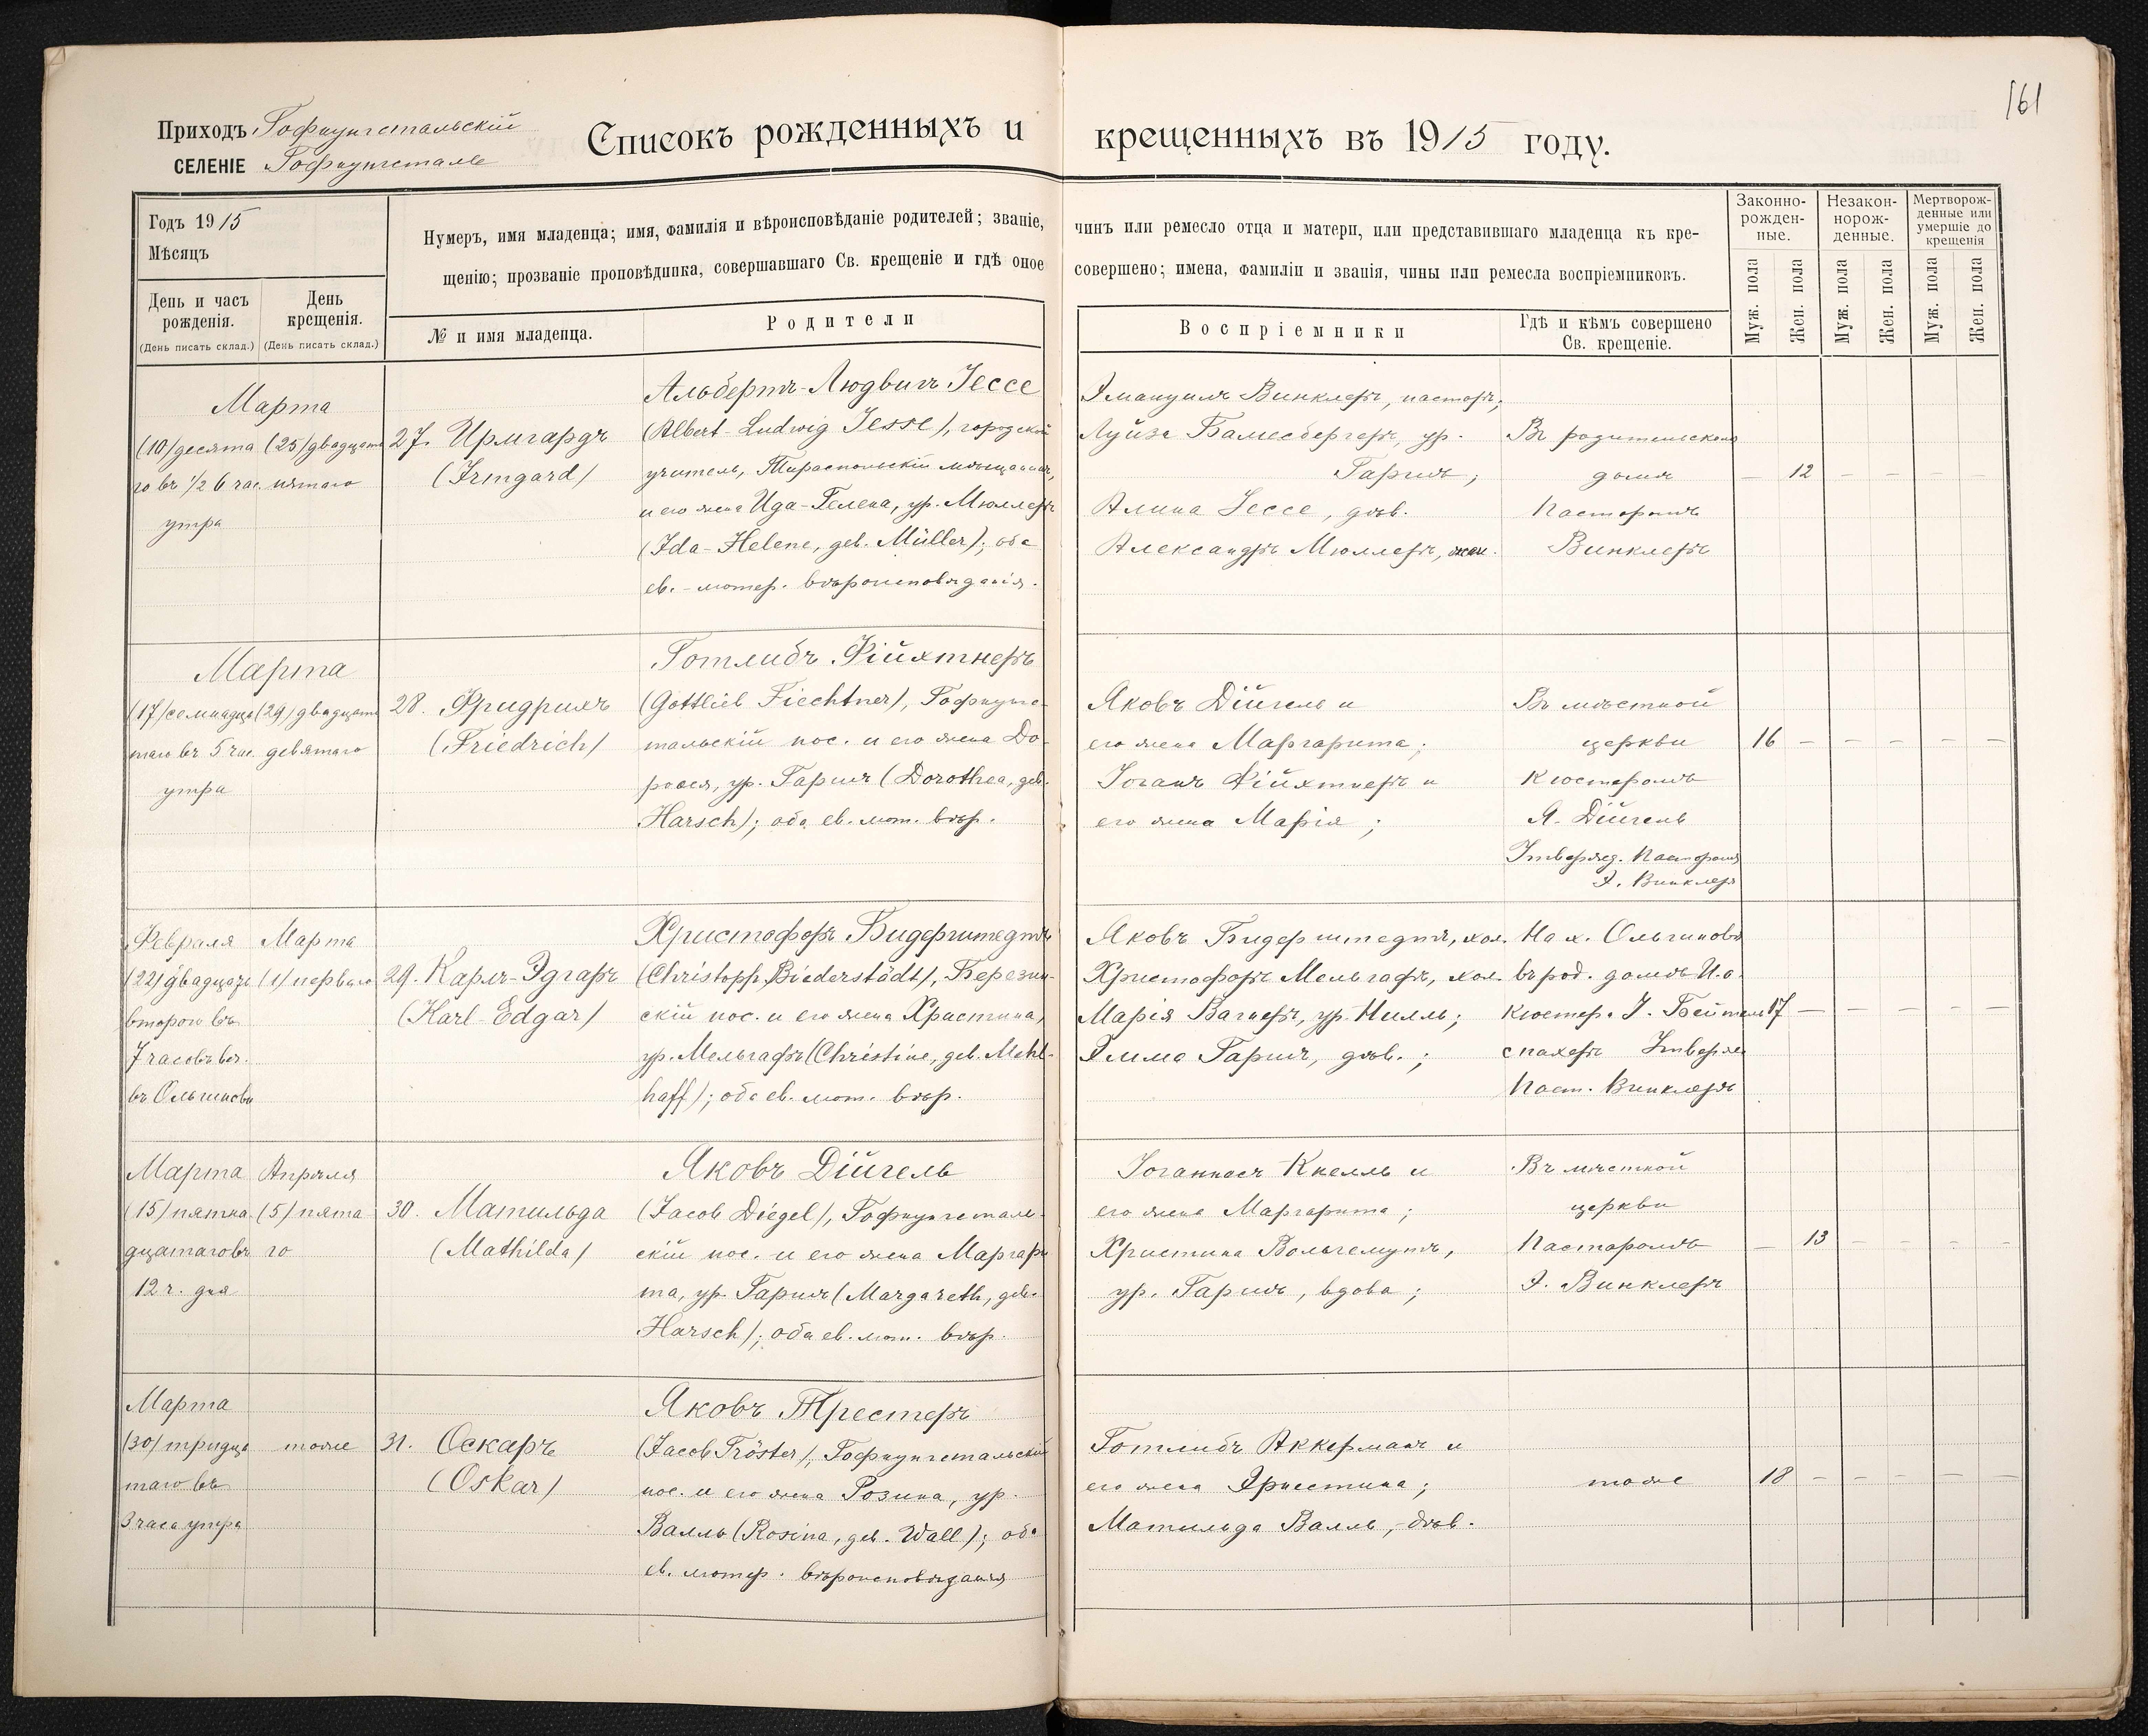 161
Приходъ Гофнунгстальскій
СЕЛЕНІЕ Гофнунгсталь
Списокъ рожденныхъ и крещенныхъ въ 1915 году.
Годъ 1915
Мѣсяцъ
День и часъ рожденія.
(День писать склад.)
День крещенія.
(День писать склад.)
Нумеръ, имя младенца; имя, фамилія и вѣроисповѣданіе родителей; званіе, чинъ или ремесло отца и матери, или представившаго младенца къ кре-
щенію; прозваніе проповѣдника, совершавшаго Св. крещеніе и гдѣ оное совершено; имена, фамиліи и званія, чины или ремесла воспріемниковъ.
№ и имя младенца.
Родители
Воспріемники
Гдѣ и кѣмъ совершено
Св. крещеніе.
Законно-
рожден-
ные.
Незакон-
норож-
денные.
Мертворож-
денные или
умершіе до
крещенія
Муж. пола
Жен. пола
Муж. пола
Жен. пола
Муж. пола
Жен. пола
Марта
(10) десята
го въ 1/2 6 час.
утра
(25) двадцать
пятаго
27. Ирмгардъ
(Irmgard)
Альбертъ-Людвигъ Іессе
(Albert-Ludwig Jesse), городской
учитель, Тираспольскій мѣщанинъ,
и его жена Ида-Гелена, ур. Мюллеръ
(Ida-Helene, geb. Müller); оба
ев.-лютер. вѣроисповѣданія.
Эмануилъ Винклеръ, пасторъ;
Луиза Бамесбергеръ, ур.
Гаршъ;
Алина Іессе, дѣв.
Александръ Мюллеръ,
Въ родительскомъ
домѣ
Пасторомъ
Винклеръ
— 12 — — — —
Марта
(17) семнадца
таго въ 5 час.
утра
(29) двадцать
девятаго
28. Фридрихъ
(Friedrich)
Готлибъ Фійхтнеръ
(Gottlieb Fiechtner), Гофнунгс-
тальскій пос. и его жена До-
ровея, ур. Гаршъ (Dorothea, geb.
Harsch); оба ев. лют. вѣр.
Яковъ Дійгель и
его жена Маргарита;
Іоганъ Фійхтнеръ и
его жена Марія;
Въ мѣстной
церкви
Кюстеромъ
Я. Дійгель
Утвержд. Пасторомъ
Э. Винклеръ
16 — — — — —
Февраля
(22) двадцать
второго въ
7 часовъ веч.
въ Ольгиновѣ
Марта
(1) перваго
29. Карлъ-Эдгаръ
(Karl-Edgar)
Христофоръ Бидерштедтъ
(Christoph Biederstädt), Березин-
скій пос. и его жена Христина,
ур. Мельгафъ (Christine, geb. Mehl-
haff); оба ев. лют. вѣр.
Яковъ Бидерштедтъ, хол.
Христофоръ Мельгафъ, хол.
Марія Вагнеръ, ур. Нилль;
Эмма Гаршъ, дѣв.;
На х. Ольгиновѣ
въ род. домѣ И. о.
кюстер. І. Бейтель
спахеръ Утвержд
Паст. Винклеръ
17 — — — — —
Марта
(15) пятна
дцатаго въ
12 ч. дня
Апрѣля
(5) пята
го
30. Матильда
(Mathilda)
Яковъ Дійгель
(Jacob Diegel), Гофнунгсталь-
скій пос. и его жена Маргари
та, ур. Гаршъ (Margareth, geb.
Harsch); оба ев. лют. вѣр.
Іоганнесъ Кнелль и
его жена Маргарита;
Христина Вольгемутъ,
ур. Гаршъ, вдова;
Въ мѣстной
церкви
Пасторомъ
Э. Винклеръ
— 13 — — — —
Марта
(30) тридца
таго въ
3 часа утра
тоже
31. Оскаръ
(Oskar)
Яковъ Трестеръ
(Jacob Tröster), Гофнунгстальскій
пос. и его жена Розина, ур.
Валль (Rosina, geb. Wall); оба
ев. лютер. вѣроисповѣданія
Готлибъ Аккерманъ и
его жена Эрнестина;
Матильда Валль, дѣв.
тоже
18 — — — — —